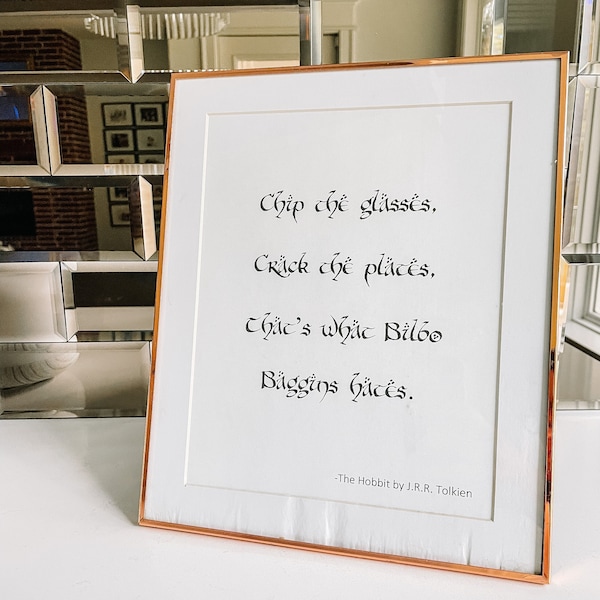 Chip the glasses,
Crack the plates,
That's what Bilbo
Baggins hates.
-The Hobbit by J.R.R. Tolkien